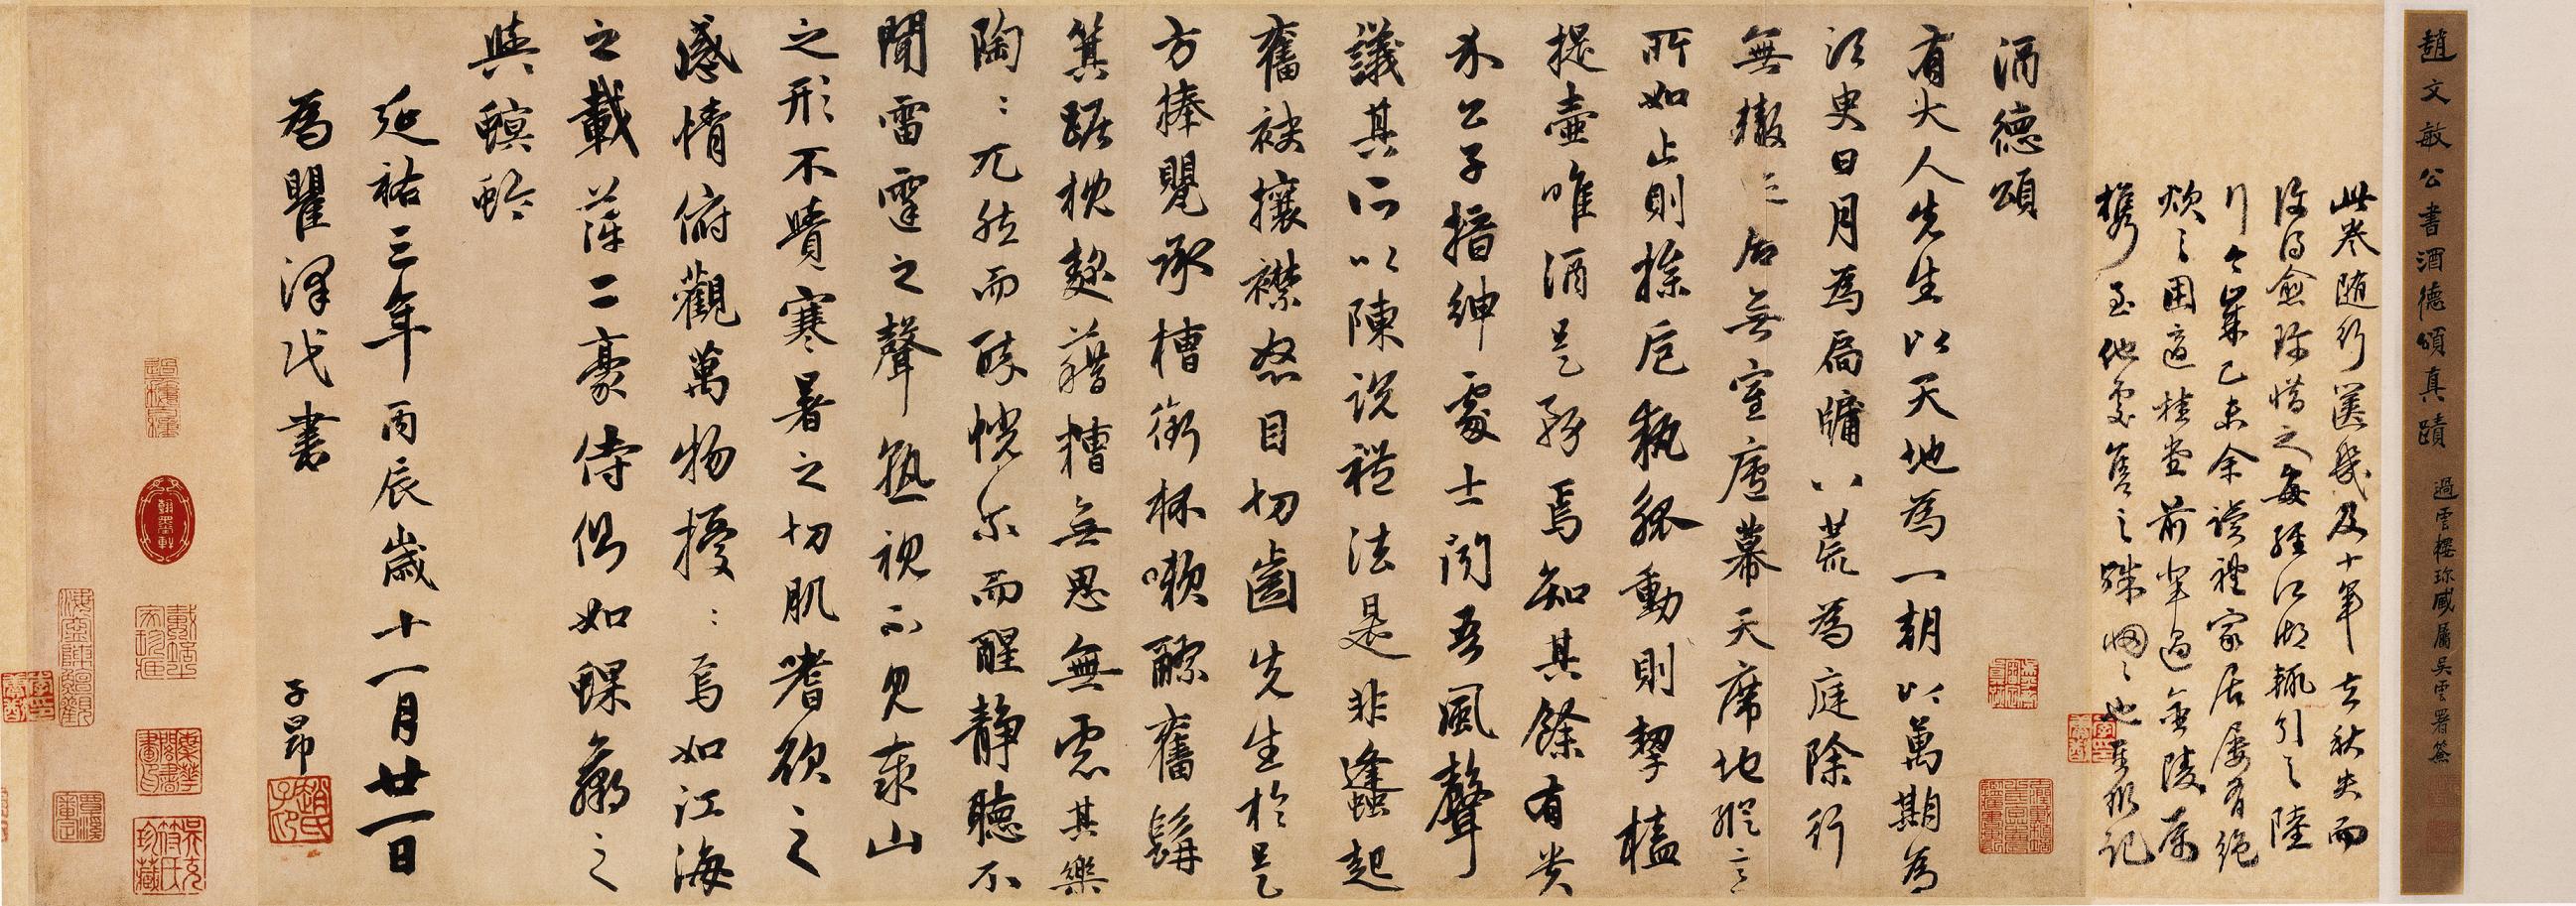 趙文敏公書酒德頌真蹟
過雲樓珍臧屬吳雲署簽
此卷随行篋幾及十年去秋失而
復得愈珍惜之每經江湖輒引之陸
行今嵗乙未余讀禮家居屢有絶
炊之困適桂堂前軰過金陵屬
携至他處售之殊惘之也
酒德頌
有大人先生以天地為一朝以萬期為
湏臾日月為扃牖八荒為庭除行
無轍迹居無室廬幕天席地縱意
所如止則操卮執觚動則挈榼
提壺唯酒是務焉知其餘有貴
介公子搢紳處士聞吾風聲
議其所以陳説禮法是非蜂起
奮袂攘襟怒目切齒先生於是
方捧甖承槽銜杯嗽醪奮髯
箕踞枕麴藉糟無思無慮其樂
陶〻兀然而醉恍尓而醒静聽不
聞雷霆之聲孰視不見泰山
之形不覺寒暑之切肌嗜欲之
感情俯觀萬物擾〻焉如江海
之載萍二豪侍側如蜾蠃之
與螟蛉
延祐三年丙辰歲十一月廿一日
為瞿澤民書
子昂
趙氏子昂